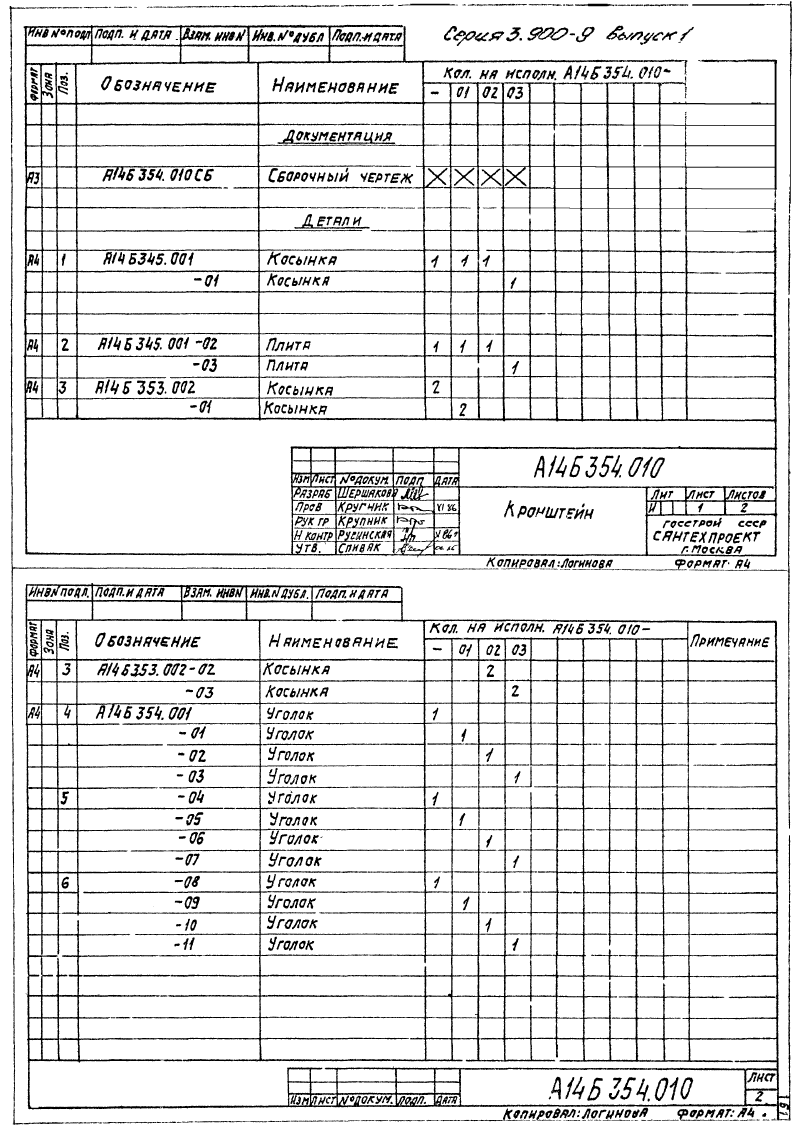 Серия 3.900-9 выпуск 1
ИНВ №ПОДЛ ПОДП. И ДАТА ВЗАМ. ИНВ№ ИНВ.№ДУБЛ ПОДП.И ДАТА
ФОРМАТ ЗОНА ПОЗ. ОБОЗНАЧЕНИЕ НАИМЕНОВАНИЕ КОЛ. НА ИСПОЛН. А14Б354.010-
- 01 02 03
ДОКУМЕНТАЦИЯ
А3 А14Б354.010СБ СБОРОЧНЫЙ ЧЕРТЕЖ X X X X
ДЕТАЛИ
А4 1 А14Б345.001 КОСЫНКА 1 1 1
-01 КОСЫНКА 1
А4 2 А14Б345.001-02 ПЛИТА 1 1 1
-03 ПЛИТА 1
А4 3 А14Б353.002 КОСЫНКА 2
-01 КОСЫНКА 2
А14Б354.010
ИЗМ ЛИСТ №ДОКУМ. ПОДП ДАТА
РАЗРАБ ШЕРШАКОВА
ПРОВ КРУГНИК VI 86
РУК ГР КРУПНИК
Н КОНТР РУСИНСКАЯ
УТВ. СПИВАК
КРОНШТЕЙН
ЛИТ ЛИСТ ЛИСТОВ
И 1 2
ГОССТРОЙ СССР
САНТЕХПРОЕКТ
Г.МОСКВА
КОПИРОВАЛ: ЛОГИНОВА ФОРМАТ: А4
ИНВ№ПОДЛ. ПОДП. И ДАТА ВЗАМ. ИНВ№ ИНВ.№ДУБЛ. ПОДП. И ДАТА
ФОРМАТ ЗОНА ПОЗ. ОБОЗНАЧЕНИЕ НАИМЕНОВАНИЕ КОЛ. НА ИСПОЛН. А14Б354.010- ПРИМЕЧАНИЕ
- 01 02 03
А4 3 А14Б353.002-02 КОСЫНКА 2
-03 КОСЫНКА 2
А4 4 А14Б354.001 УГОЛОК 1
-01 УГОЛОК 1
-02 УГОЛОК 1
-03 УГОЛОК 1
5 -04 УГОЛОК 1
-05 УГОЛОК 1
-06 УГОЛОК 1
-07 УГОЛОК 1
6 -08 УГОЛОК 1
-09 УГОЛОК 1
-10 УГОЛОК 1
-11 УГОЛОК 1
А14Б354.010
ЛИСТ
2
ИЗМ ЛИСТ №ДОКУМ. ПОДП. ДАТА
КОПИРОВАЛ: ЛОГИНОВА ФОРМАТ: А4